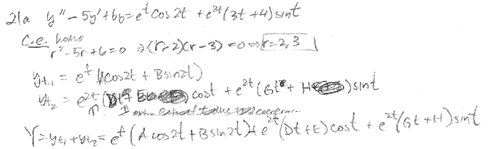 21a y'' - 5y' + 6y = e^t cos2t + e^2t (3t+4) sint
C.e. homo
r² - 5r + 6 = 0 ⇒ (r-2)(r-3) = 0 ⇒ r = 2, 3
y_t1 = e^t (Acos2t + Bsin2t)
y_t2 = e^2t ( ) cost + e^2t (Gt + H) sint
Y = y_t1 + y_t2 = e^t (A cos2t + B sin2t) + e^2t (Dt+E) cost + e^2t (Gt + H) sint